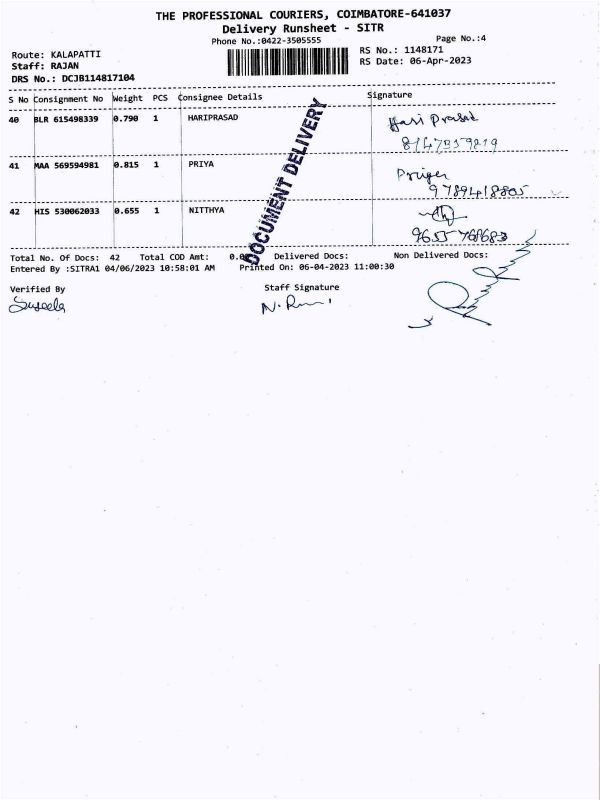 THE PROFESSIONAL COURIERS, COIMBATORE-641037
Delivery Runsheet - SITR
Phone No.:0422-3505555 Page No.:4
Route: KALAPATTI RS No.: 1148171
Staff: RAJAN RS Date: 06-Apr-2023
DRS No.: DCJB114817104
S No Consignment No Weight PCS Consignee Details Signature
40 BLR 615498339 0.790 1 HARIPRASAD Hari Prasad
8147359219
41 MAA 569594981 0.815 1 PRIYA Priya
9789418805
42 HIS 530062033 0.655 1 NITTHYA
9655768683
DOCUMENT DELIVERY
Total No. Of Docs: 42 Total COD Amt: 0.0 Delivered Docs: Non Delivered Docs:
Entered By :SITRA1 04/06/2023 10:58:01 AM Printed On: 06-04-2023 11:00:30
Verified By Staff Signature
Suseela